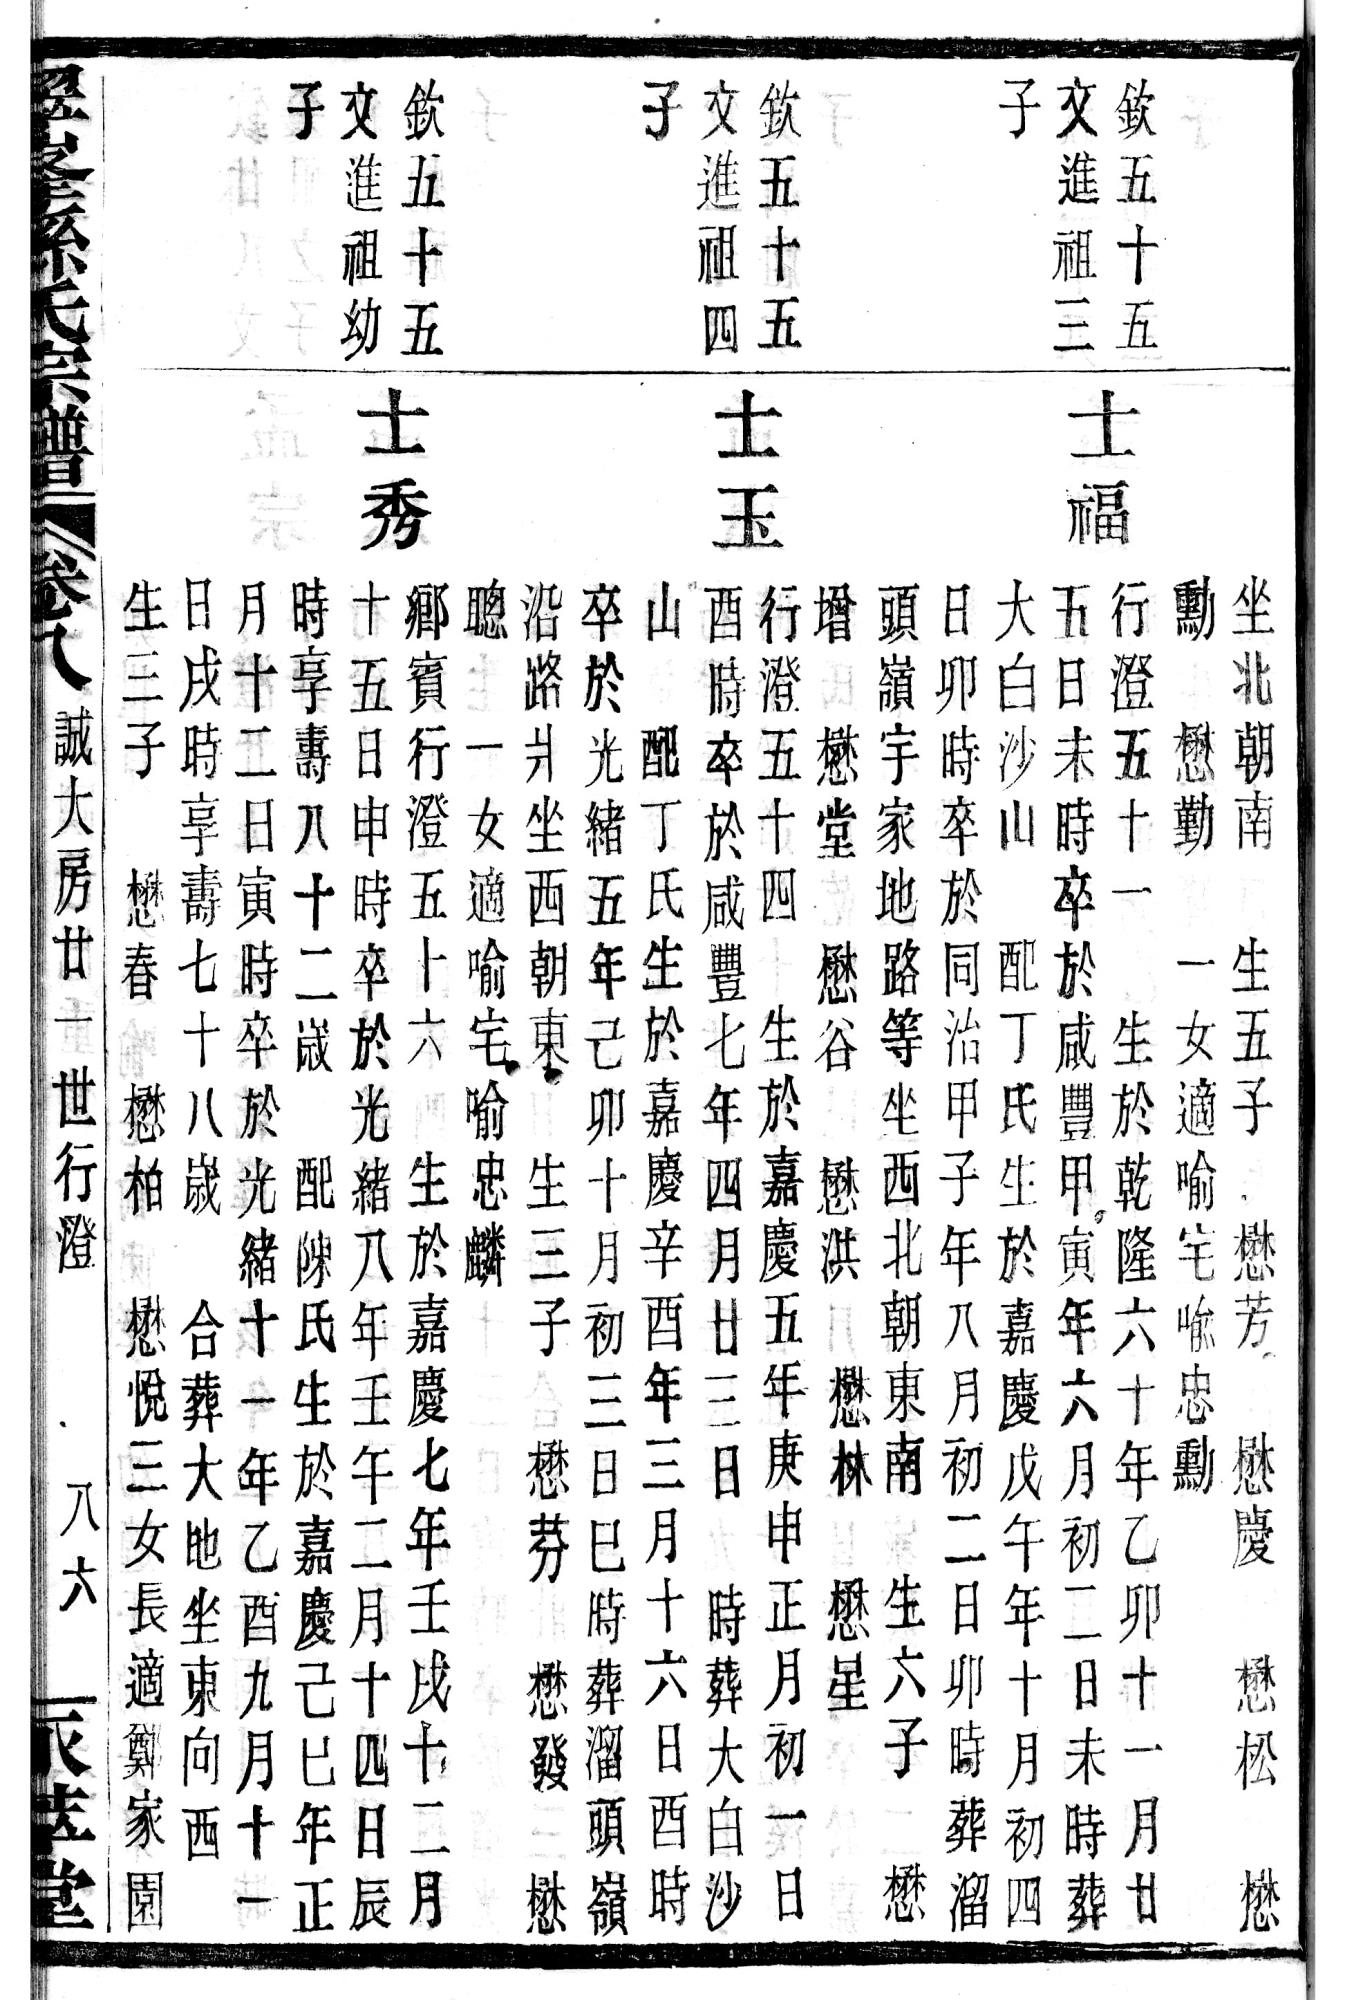 坐北朝南　生五子　懋芳　懋慶　懋松　懋
勳　懋勤　一女適喻宅喻忠勳
欽五十五
文進祖三
子
士福
行澄五十一　生於乾隆六十年乙卯十一月廿
五日未時卒於咸豐甲寅年六月初二日未時葬
大白沙山　配丁氏生於嘉慶戊午年十月初四
日卯時卒於同治甲子年八月初二日卯時葬溜
頭嶺宇家地路等坐西北朝東南　生六子　懋
增　懋堂　懋谷　懋洪　懋林　懋星
欽五十五
文進祖四
子
士玉
行澄五十四　生於嘉慶五年庚申正月初一日
酉時卒於咸豐七年四月廿三日　時葬大白沙
山　配丁氏生於嘉慶辛酉年三月十六日酉時
卒於光緒五年己卯十月初三日巳時葬溜頭嶺
沿路爿坐西朝東　生三子　懋芬　懋發　懋
聰　一女適喻宅喻忠麟
欽五十五
文進祖幼
子
士秀
鄉賓行澄五十六　生於嘉慶七年壬戌十二月
十五日申時卒於光緒八年壬午二月十四日辰
時享壽八十二歲　配陳氏生於嘉慶己巳年正
月十二日寅時卒於光緒十一年乙酉九月十一
日戌時享壽七十八歲　合葬大地坐東向西
生三子　懋春　懋柏　懋悅三女長適鄭家園
孫氏宗譜　卷八　誠大房廿一世行澄　八六　堂